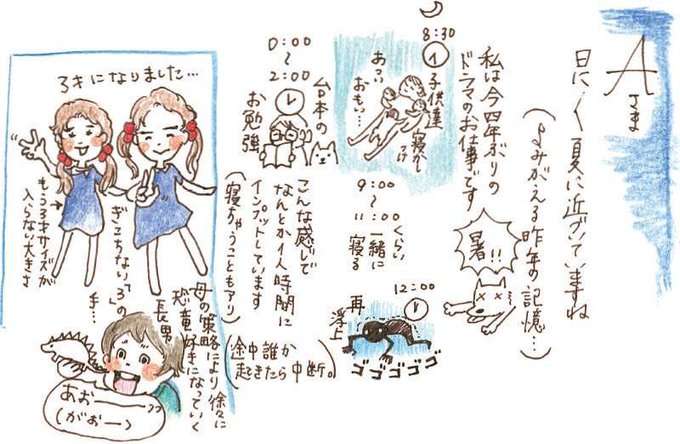 Aさま
日に〱夏に近づいていますね
(よみがえる昨年の記憶…)
暑!!
私は今四年ぶりの
ドラマのお仕事です
8:30
子供達
寝かしつけ
あつい
おもい…
9:00
〜
11:00くらい
一緒に
寝る
12:00
再
浮上
ゴゴゴゴゴ
0:00
〜
2:00
台本の
お勉強
こんな感じで
なんとか1人時間に
インプットしています
(寝ちゃうこともアリ)
(途中誰か
起きたら中断。)
3才になりました…
ぎこちない「3」の
手…
もう3才サイズが
入らない大きさ
母の策略により徐々に
恐竜好きになっていく
長男
あおーーー
(がおー)